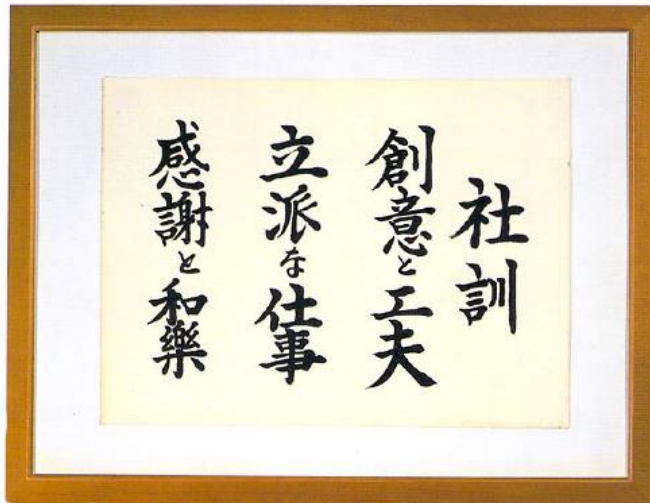 社訓
創意と工夫
立派な仕事
感謝と和樂